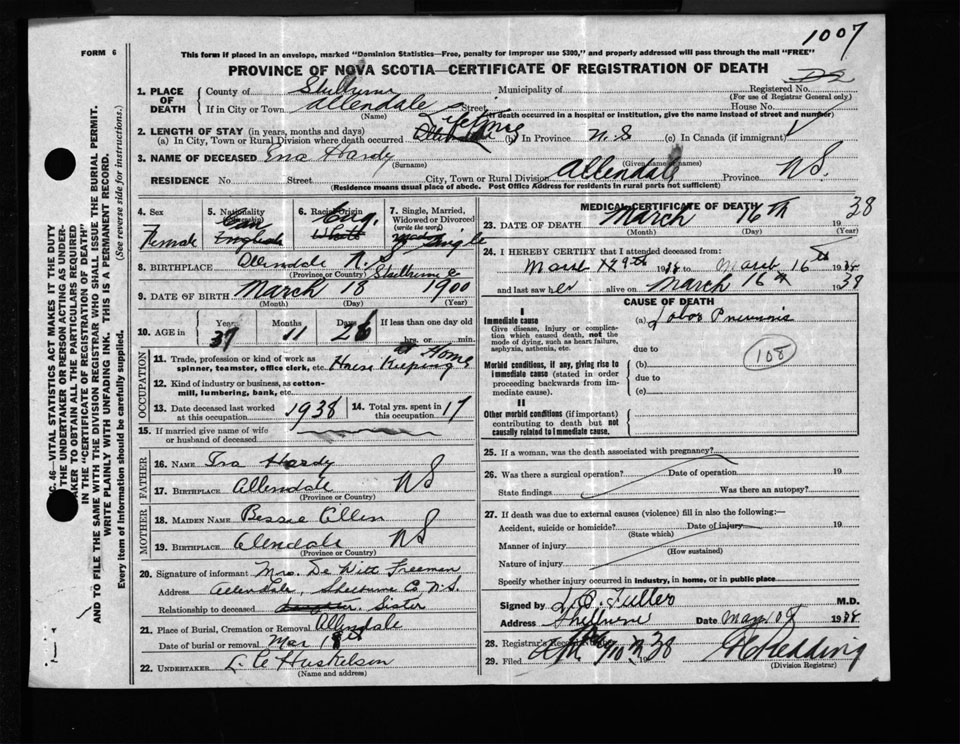 1007
FORM 6
This form if placed in an envelope, marked "Dominion Statistics—Free, penalty for improper use $300," and properly addressed will pass through the mail "FREE"
PROVINCE OF NOVA SCOTIA—CERTIFICATE OF REGISTRATION OF DEATH
1. PLACE OF DEATH County of Shelburne Municipality of Registered No.
(For use of Registrar General only)
If in City or Town Allendale Street House No.
(Name) (If death occurred in a hospital or institution, give the name instead of street and number)
2. LENGTH OF STAY (in years, months and days) Lifetime
(a) In City, Town or Rural Division where death occurred (b) In Province N.S (c) In Canada (if immigrant)
3. NAME OF DECEASED Ena Hardy
(Surname) (Given name or names)
RESIDENCE No. Street City, Town or Rural Division Allendale Province N.S.
(Residence means usual place of abode. Post Office Address for residents in rural parts not sufficient)
4. Sex Female
5. Nationality Can English
6. Racial Origin Eng. White
7. Single, Married, Widowed or Divorced (write the word) Single
8. BIRTHPLACE Allendale N.S.
(Province or Country) Shelburne Co
9. DATE OF BIRTH March 18 1900
(Month) (Day) (Year)
10. AGE in Years Months Days If less than one day old
37 11 26 hrs. or min.
OCCUPATION
11. Trade, profession or kind of work as spinner, teamster, office clerk, etc. House Keeping at Home
12. Kind of industry or business, as cotton-mill, lumbering, bank, etc.
13. Date deceased last worked at this occupation 1938
14. Total yrs. spent in this occupation 17
15. If married give name of wife or husband of deceased
FATHER
16. NAME Ira Hardy
17. BIRTHPLACE Allendale NS
(Province or Country)
MOTHER
18. MAIDEN NAME Bessie Allen
19. BIRTHPLACE Allendale NS
(Province or Country)
20. Signature of informant Mrs. De Witt Freeman
Address Allendale, Shelburne Co N.S.
Relationship to deceased Daughter, Sister
21. Place of Burial, Cremation or Removal Allendale
Date of burial or removal Mar 18th
22. UNDERTAKER
(Name and address)
MEDICAL CERTIFICATE OF DEATH
23. DATE OF DEATH March 16th 1938
(Month) (Day) (Year)
24. I HEREBY CERTIFY that I attended deceased from:
March 9th 1938 to March 16th 1938
and last saw her alive on March 16th 1938
CAUSE OF DEATH
I
Immediate cause (a) Lobar Pneumonia
Give disease, injury or complication which caused death, not the mode of dying, such as heart failure, asphyxia, asthenia, etc.
due to
108
Morbid conditions, if any, giving rise to immediate cause (stated in order proceeding backwards from immediate cause).
(b)
due to
(c)
II
Other morbid conditions (if important) contributing to death but not causally related to immediate cause.
25. If a woman, was the death associated with pregnancy?
26. Was there a surgical operation? Date of operation 19
State findings Was there an autopsy?
27. If death was due to external causes (violence) fill in also the following:—
Accident, suicide or homicide? Date of injury 19
(State which)
Manner of injury
(How sustained)
Nature of injury
Specify whether injury occurred in industry, in home, or in public place
Signed by L.O. Fuller M.D.
Address Shelburne Date 1938
28. Registrar's Record No.
29. Filed 38 Redding
(Division Registrar)
C. 46—VITAL STATISTICS ACT MAKES IT THE DUTY
THE UNDERTAKER OR PERSON ACTING AS UNDER-
TAKER TO OBTAIN ALL THE PARTICULARS REQUIRED
IN THE "CERTIFICATE OF REGISTRATION OF DEATH"
AND TO FILE THE SAME WITH THE DIVISION REGISTRAR WHO SHALL ISSUE THE BURIAL PERMIT.
WRITE PLAINLY WITH UNFADING INK. THIS IS A PERMANENT RECORD.
Every item of Information should be carefully supplied. (See reverse side for instructions.)